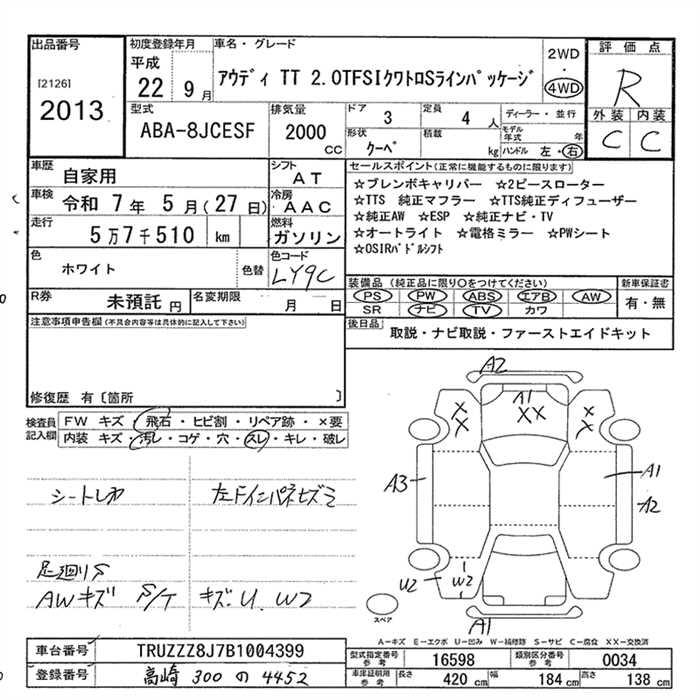 出品番号
[2126]
2013
初度登録年月
平成
22年 9月
車名・グレード
アウディ TT 2.0TFSIクワトロSラインパッケージ
2WD
・
4WD
評価点
R
外装 内装
C C
型式
ABA-8JCESF
排気量
2000
CC
ドア
3
定員
4 人
形状
クーペ
積載
kg
ディーラー・並行
モデル年式 年
ハンドル 左・右
車歴
自家用
シフト
AT
車検
令和 7年 5月(27日)
冷房
AAC
走行
5万7千510 km
燃料
ガソリン
色
ホワイト
色替
色コード
LY9C
R券
未預託 円
名変期限
月 日
セールスポイント(正常に機能するものに限ります)
☆ブレンボキャリパー ☆2ピースローター
☆TTS 純正マフラー ☆TTS純正ディフューザー
☆純正AW ☆ESP ☆純正ナビ・TV
☆オートライト ☆電格ミラー ☆PWシート
☆OSIRパドルシフト
装備品 (純正品に限り○をつけてください)
PS PW ABS エアB AW
SR ナビ TV カワ
新車保証書
有・無
後日品
取説・ナビ取説・ファーストエイドキット
注意事項申告欄(不具合内容等は具体的に記入して下さい)
修復歴 有〔箇所 〕
検査員記入欄
FW キズ・飛石・ヒビ割・リペア跡・×要
内装 キズ・汚レ・コゲ・穴・スレ・キレ・破レ
シートしわ
左ドインパネセズミ
足廻りS
AWキズ S/ケ キズ.U.W2
A2
A1
XX
X
X
X
X
A3
A1
A2
U2
W2
A1
スペア
A-キズ E-エクボ U-凹み W-補修跡 S-サビ C-腐食 XX-交換済
車台番号
TRUZZZ8J7B1004399
登録番号
高崎 300 の 4452
型式指定番号
参考
16598
類別区分番号
参考
0034
車庫証明用
参考
長さ
420 cm
幅
184 cm
高さ
138 cm